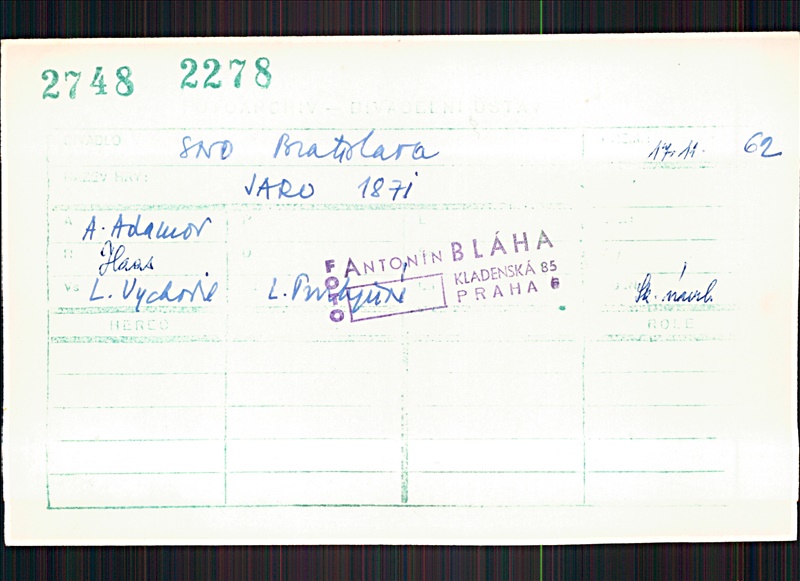 2748 2278
FOTOARCHIV – DIVADELNÍ ÚSTAV
DIVADLO SND Bratislava 17.11. 62
NÁZEV HRY: JARO 1871
A A. Adamov
Haas
Vs L. Vychodil L.
FOTO ANTONÍN BLÁHA
KLADENSKÁ 85
PRAHA 6
HEREC ROLE